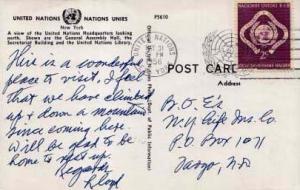 UNITED NATIONS NATIONS UNIES
P5610
New York
A view of the United Nations Headquarters looking
north. Shown are the General Assembly Hall, the
Secretariat Building and the United Nations Library.
Here is a wonderful
place to visit, I feel
that we have climbed
up & down a mountain
since coming here.
Will be glad to be
home to rest up.
Regards
Lloyd
UNITED NATIONS
31
PM
56
NATIONS UNIES
POST CARD
Address
B.O.E's
N.Y. Life Ins. Co.
P.O. Box 1071
Fargo, N.D.